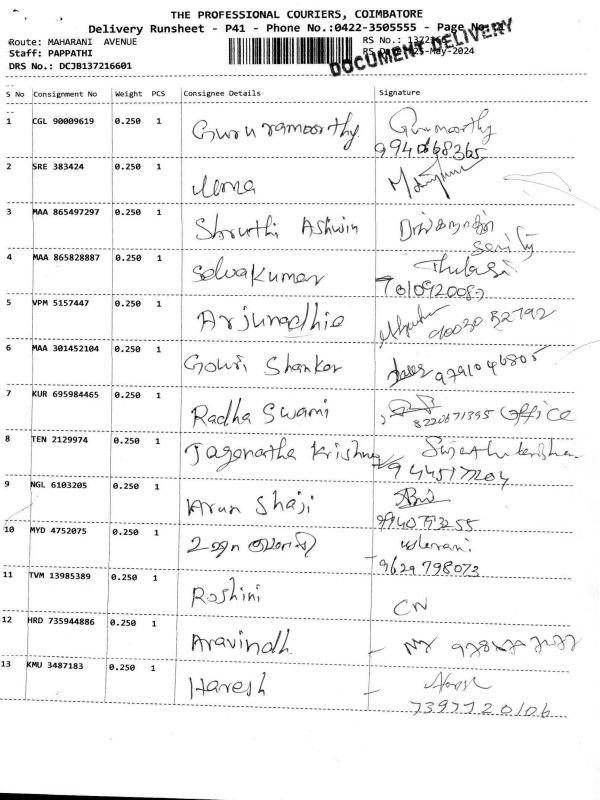 THE PROFESSIONAL COURIERS, COIMBATORE
Delivery Runsheet - P41 - Phone No.:0422-3505555 - Page No:
DOCUMENT DELIVERY
Route: MAHARANI AVENUE
Staff: PAPPATHI
DRS No.: DCJB137216601
RS No.:
25-May-2024
S No Consignment No Weight PCS Consignee Details Signature
1 CGL 90009619 0.250 1 Gururamoorthy
2 SRE 383424 0.250 1 Uma
3 MAA 865497297 0.250 1 Shruthi Ashwin
4 MAA 865828887 0.250 1 Selvakumar Thulasi
5 VPM 5157447 0.250 1
6 MAA 301452104 0.250 1 Gowri Shankar 9791046805
7 KUR 695984465 0.250 1 Radha Swami 8220671395 Office
8 TEN 2129974 0.250 1 Jaganatha Krishna
9 NGL 6103205 0.250 1 Arun Shaji
10 MYD 4752075 0.250 1
9629798073
11 TVM 13985389 0.250 1 Roshini CN
12 HRD 735944886 0.250 1 Aravindh
13 KMU 3487183 0.250 1 Haresh
7397720106